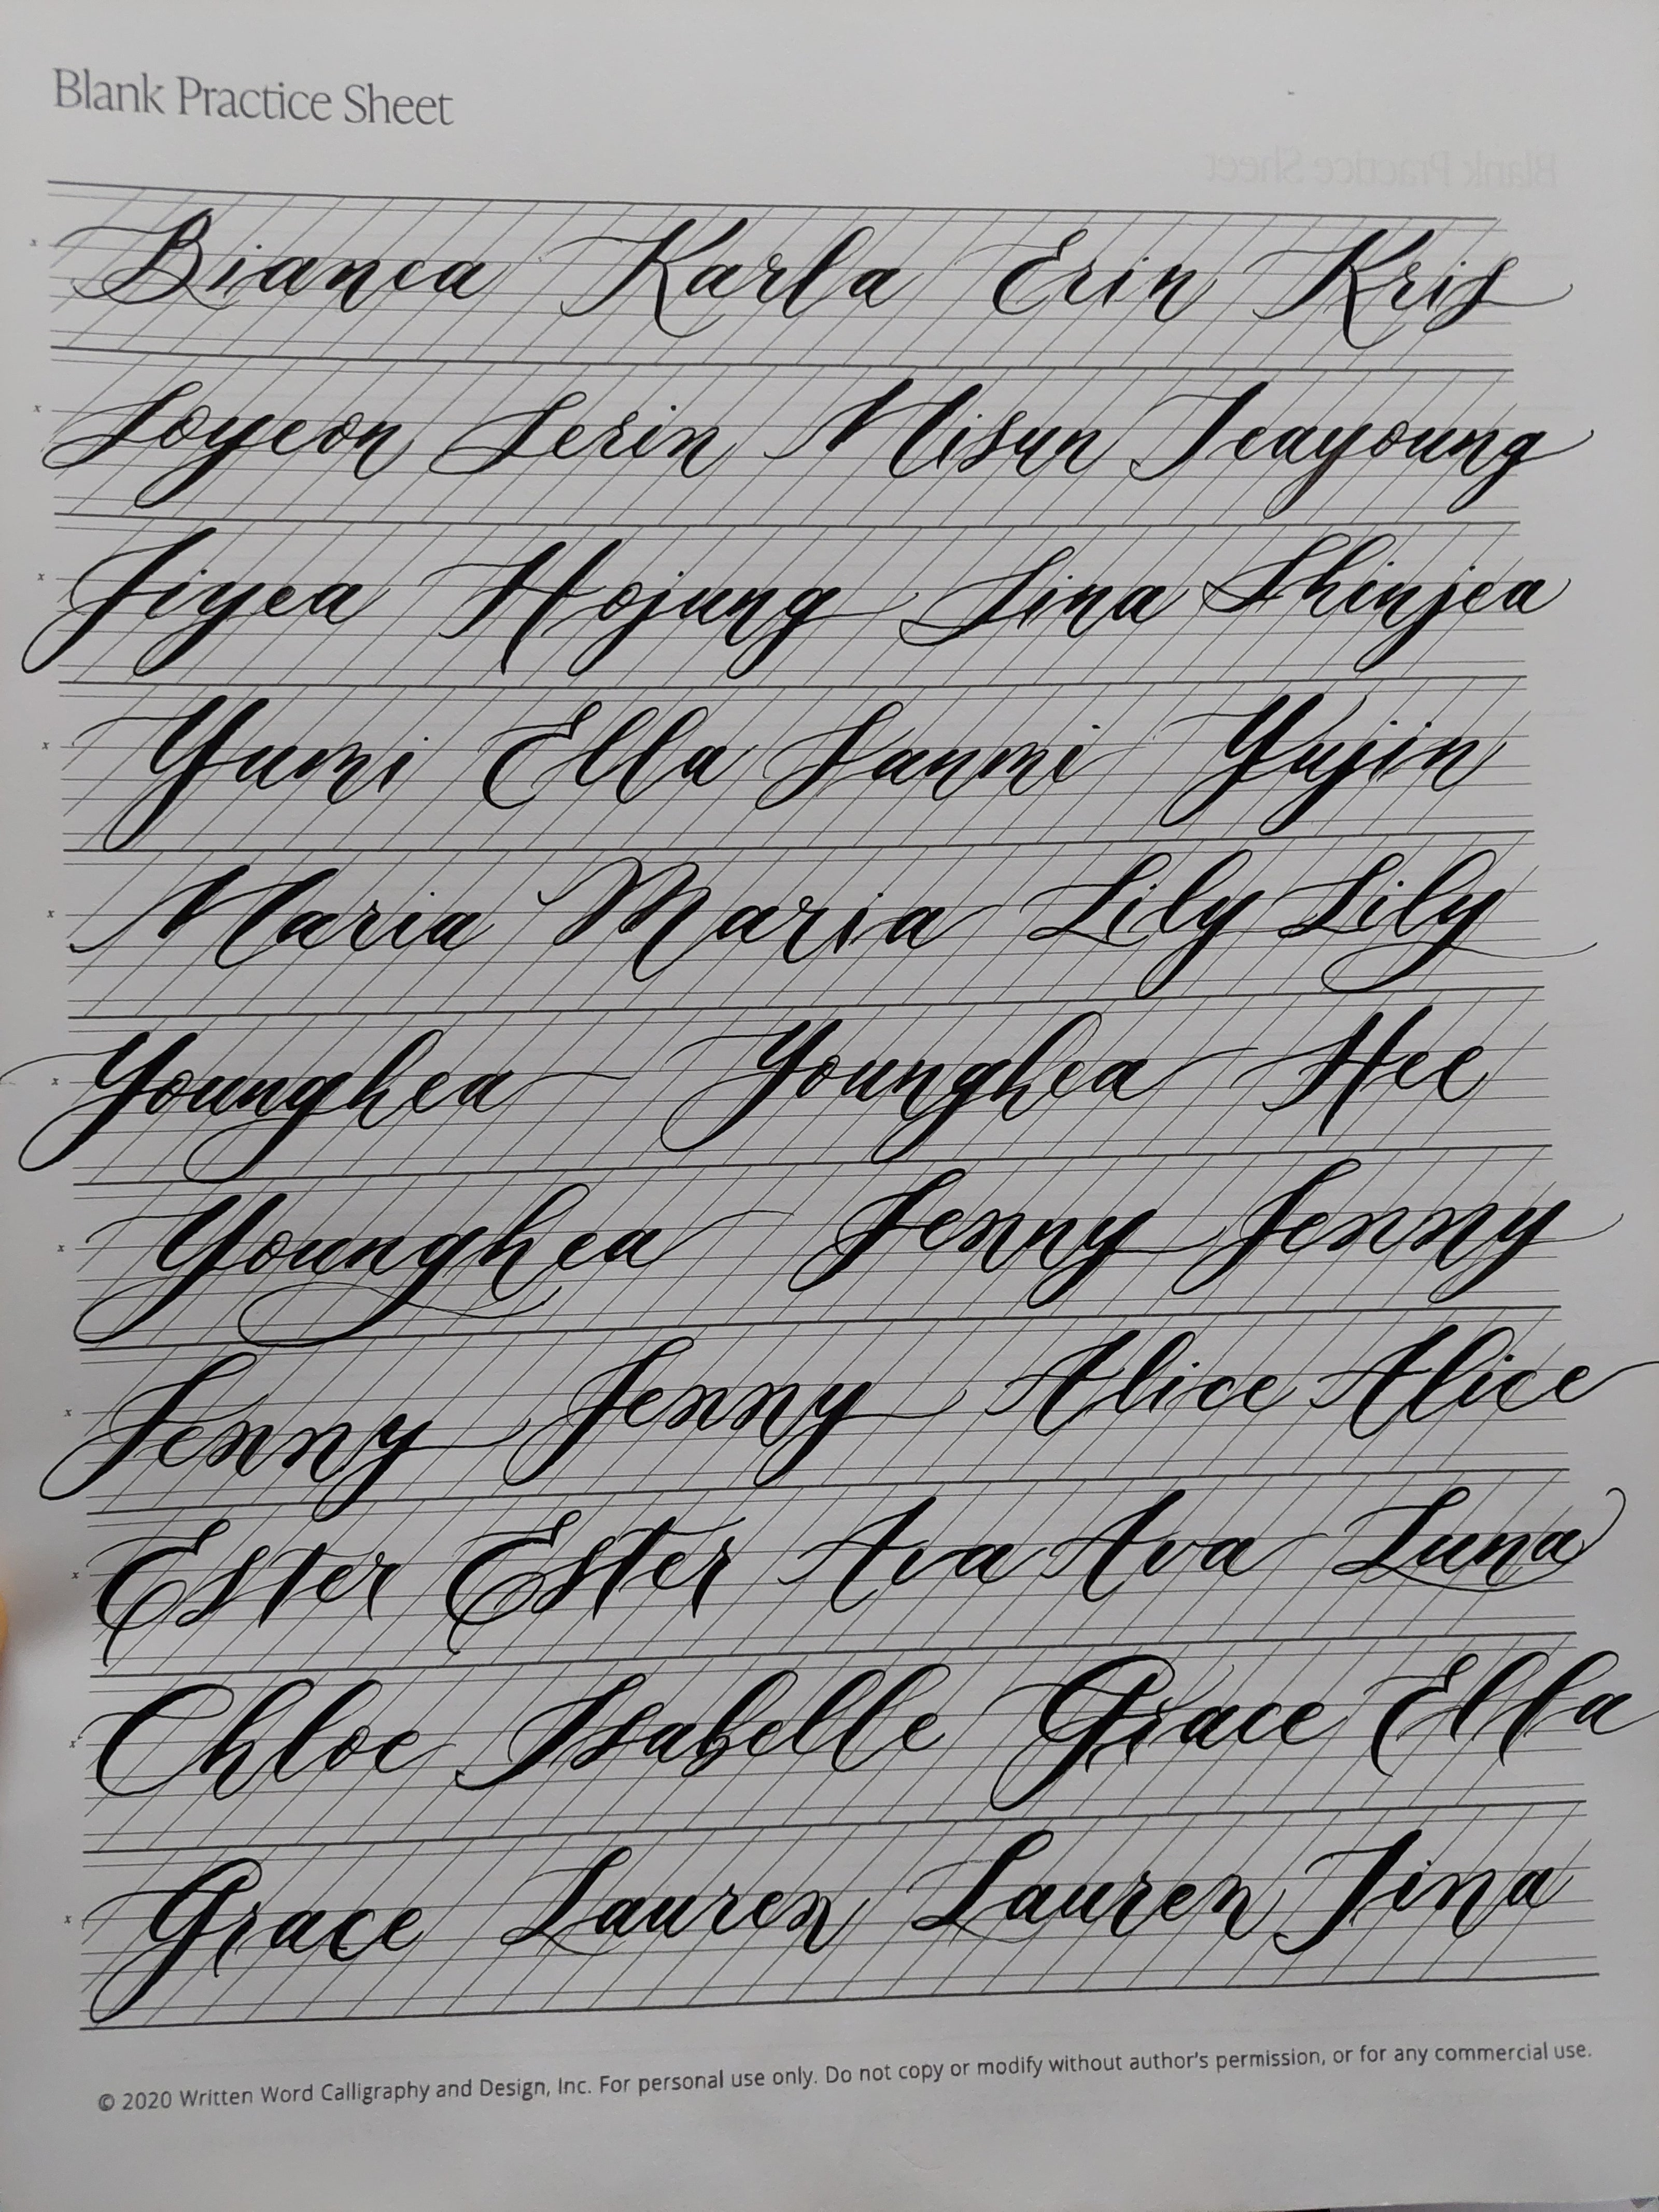 Blank Practice Sheet
Bianca Karla Erin Kris
Soyeon Serin Misun Teayoung
Jiyea Hojung Sina Shinjea
Yumi Ella Sanmi Yujin
Maria Maria Lily Lily
Younghea Younghea Hee
Younghea Jenny Jenny
Jenny Jenny Alice Alice
Ester Ester Ava Ava Luna
Chloe Isabelle Grace Ella
Grace Lauren Lauren Jina
© 2020 Written Word Calligraphy and Design, Inc. For personal use only. Do not copy or modify without author's permission, or for any commercial use.